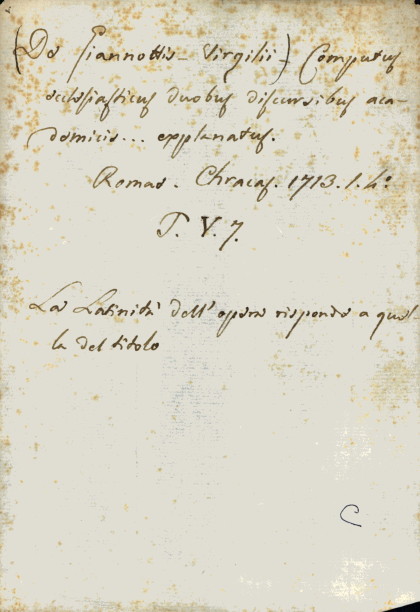 (De Giannottis - Virgilii) Computus
ecclesiasticus duobus discursibus aca-
demicis... explanatus.
Romae. Chracas. 1713. 1. 4º
T. V. 7.
La Latinità dell'opera risponde a quel
la del titolo
C